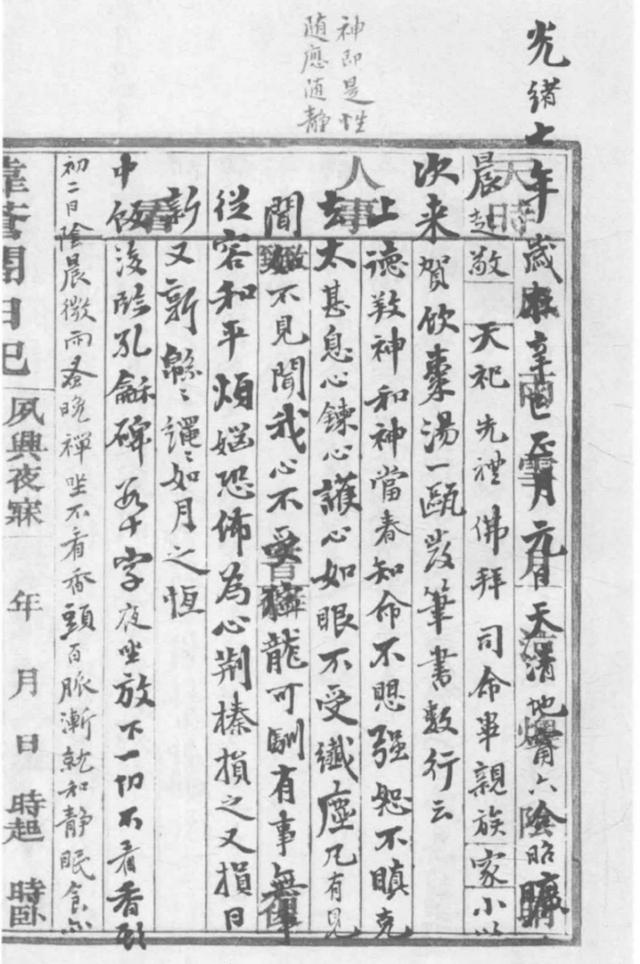 神即是性
随應随静
光緒七年歲在辛巳正月元日天清地甯六陰昭曠
晨起敬天祀先禮佛拜司命畢親族家小以
次来賀飲棗湯一甌發筆書數行云
上德敦神和神當春知命不思强恕不瞋克
去太甚息心鍊心護心如眼不受纖塵凡有見
聞如不見聞我心不受獰龍可馴有事無事
從容和平煩惱恐怖為心荆榛損之又損日
新又新緜緜繩繩如月之恆
中飯後臨孔龢碑若干字夜坐放下一切不看香頭
初二日陰晨微雨蚤晚禪坐不看香頭百脈漸就和静眠食亦
韋菴閒日記
夙興夜寐 年 月 日 時起 時卧
天時
人事